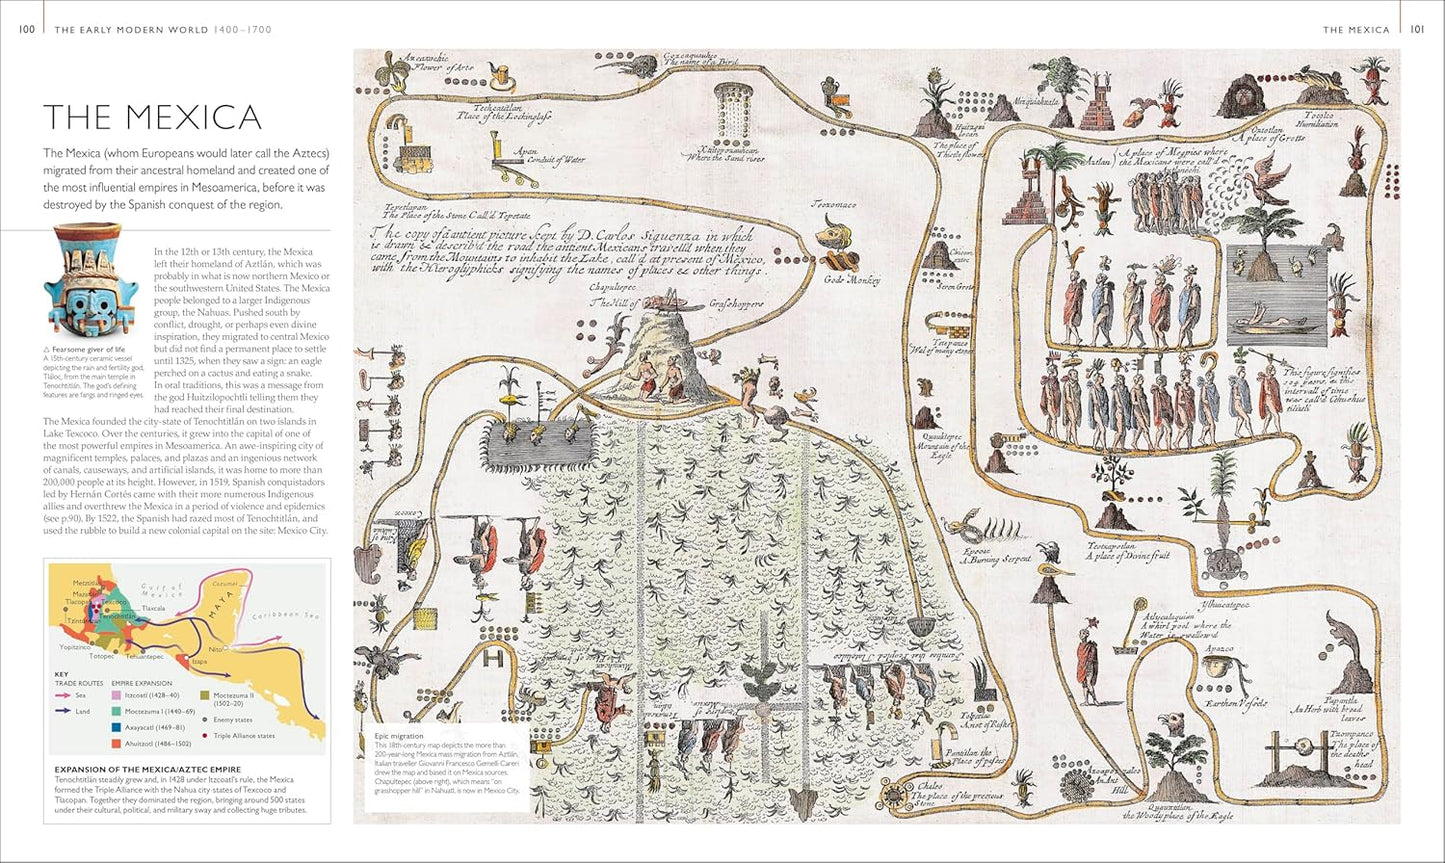 100
THE EARLY MODERN WORLD 1400–1700
THE MEXICA
101
THE MEXICA
The Mexica (whom Europeans would later call the Aztecs)
migrated from their ancestral homeland and created one of
the most influential empires in Mesoamerica, before it was
destroyed by the Spanish conquest of the region.
△ Fearsome giver of life
A 15th-century ceramic vessel
depicting the rain and fertility god,
Tláloc, from the main temple in
Tenochtitlán. The god's defining
features are fangs and ringed eyes.
In the 12th or 13th century, the Mexica
left their homeland of Aztlán, which was
probably in what is now northern Mexico or
the southwestern United States. The Mexica
people belonged to a larger Indigenous
group, the Nahuas. Pushed south by
conflict, drought, or perhaps even divine
inspiration, they migrated to central Mexico
but did not find a permanent place to settle
until 1325, when they saw a sign: an eagle
perched on a cactus and eating a snake.
In oral traditions, this was a message from
the god Huitzilopochtli telling them they
had reached their final destination.
The Mexica founded the city-state of Tenochtitlán on two islands in
Lake Texcoco. Over the centuries, it grew into the capital of one of
the most powerful empires in Mesoamerica. An awe-inspiring city of
magnificent temples, palaces, and plazas and an ingenious network
of canals, causeways, and artificial islands, it was home to more than
200,000 people at its height. However, in 1519, Spanish conquistadors
led by Hernán Cortés came with their more numerous Indigenous
allies and overthrew the Mexica in a period of violence and epidemics
(see p.90). By 1522, the Spanish had razed most of Tenochtitlán, and
used the rubble to build a new colonial capital on the site: Mexico City.
Metztitlán
Gulf of
Mexico
Cozumel
Tlacopan
Texcoco
Tlaxcala
MAYA
Caribbean Sea
Tenochtitlán
Yopitzinco
Totopec
Tehuantepec
Nito
Izapa
KEY
TRADE ROUTES
Sea
Land
EMPIRE EXPANSION
Itzcoatl (1428–40)
Moctezuma I (1440–69)
Axayacatl (1469–81)
Ahuitzotl (1486–1502)
Moctezuma II
(1502–20)
Enemy states
Triple Alliance states
EXPANSION OF THE MEXICA/AZTEC EMPIRE
Tenochtitlán steadily grew and, in 1428 under Itzcoatl's rule, the Mexica
formed the Triple Alliance with the Nahua city-states of Texcoco and
Tlacopan. Together they dominated the region, bringing around 500 states
under their cultural, political, and military sway and collecting huge tributes.
Flower of Arts
The name of a Bird
Place of the Lookinglass
Apan
Conduit of Water
Where the Sand rises
The place of
Thistle flowers
Humiliation
A place of Grotts
Aztlan
A place of Megpies where
the Mexicans were call'd
Tepetlapan
The Place of the Stone Call'd Tepetate
The copy of ä antient picture kept by D. Carlos Siguenza in which
is drawn & describ'd the road the antient Mexicans travell'd when they
came from the Mountains to inhabit the Lake, call'd at present of Mexico,
with the Hieroglyphicks signifying the names of places & other things.
Teozomaco
Gods Monkey
Chapultepec
The Hill of Grashoppers
Seven Grotts
Tetepanco
Wal of many stones
This figure signifies
104 years, as this
intervall of time
was call'd
Quauhtepec
Mountain of the
Eagle
Epcoac
A Burning Serpent
Teotzapotlan
A place of Divine fruit
Ylhuicatepec
Atlycalaquian
A whirl pool where the
Water is swallow'd
Apazco
Earthen Vessels
Papantla
An Herb with broad
leaves
Tzompanco
The place of
the deaths
head
Pantitlan the
Place of
Chalco
The place of the precious
Stone
An Ant
Hill
Quauxtitlan
the Woody place of the Eagle
Epic migration
This 18th-century map depicts the more than
200-year-long Mexica mass migration from Aztlán.
Italian traveller Giovanni Francesco Gemelli Careri
drew the map and based it on Mexica sources.
Chapultepec (above right), which means "on
grasshopper hill" in Nahuatl, is now in Mexico City.